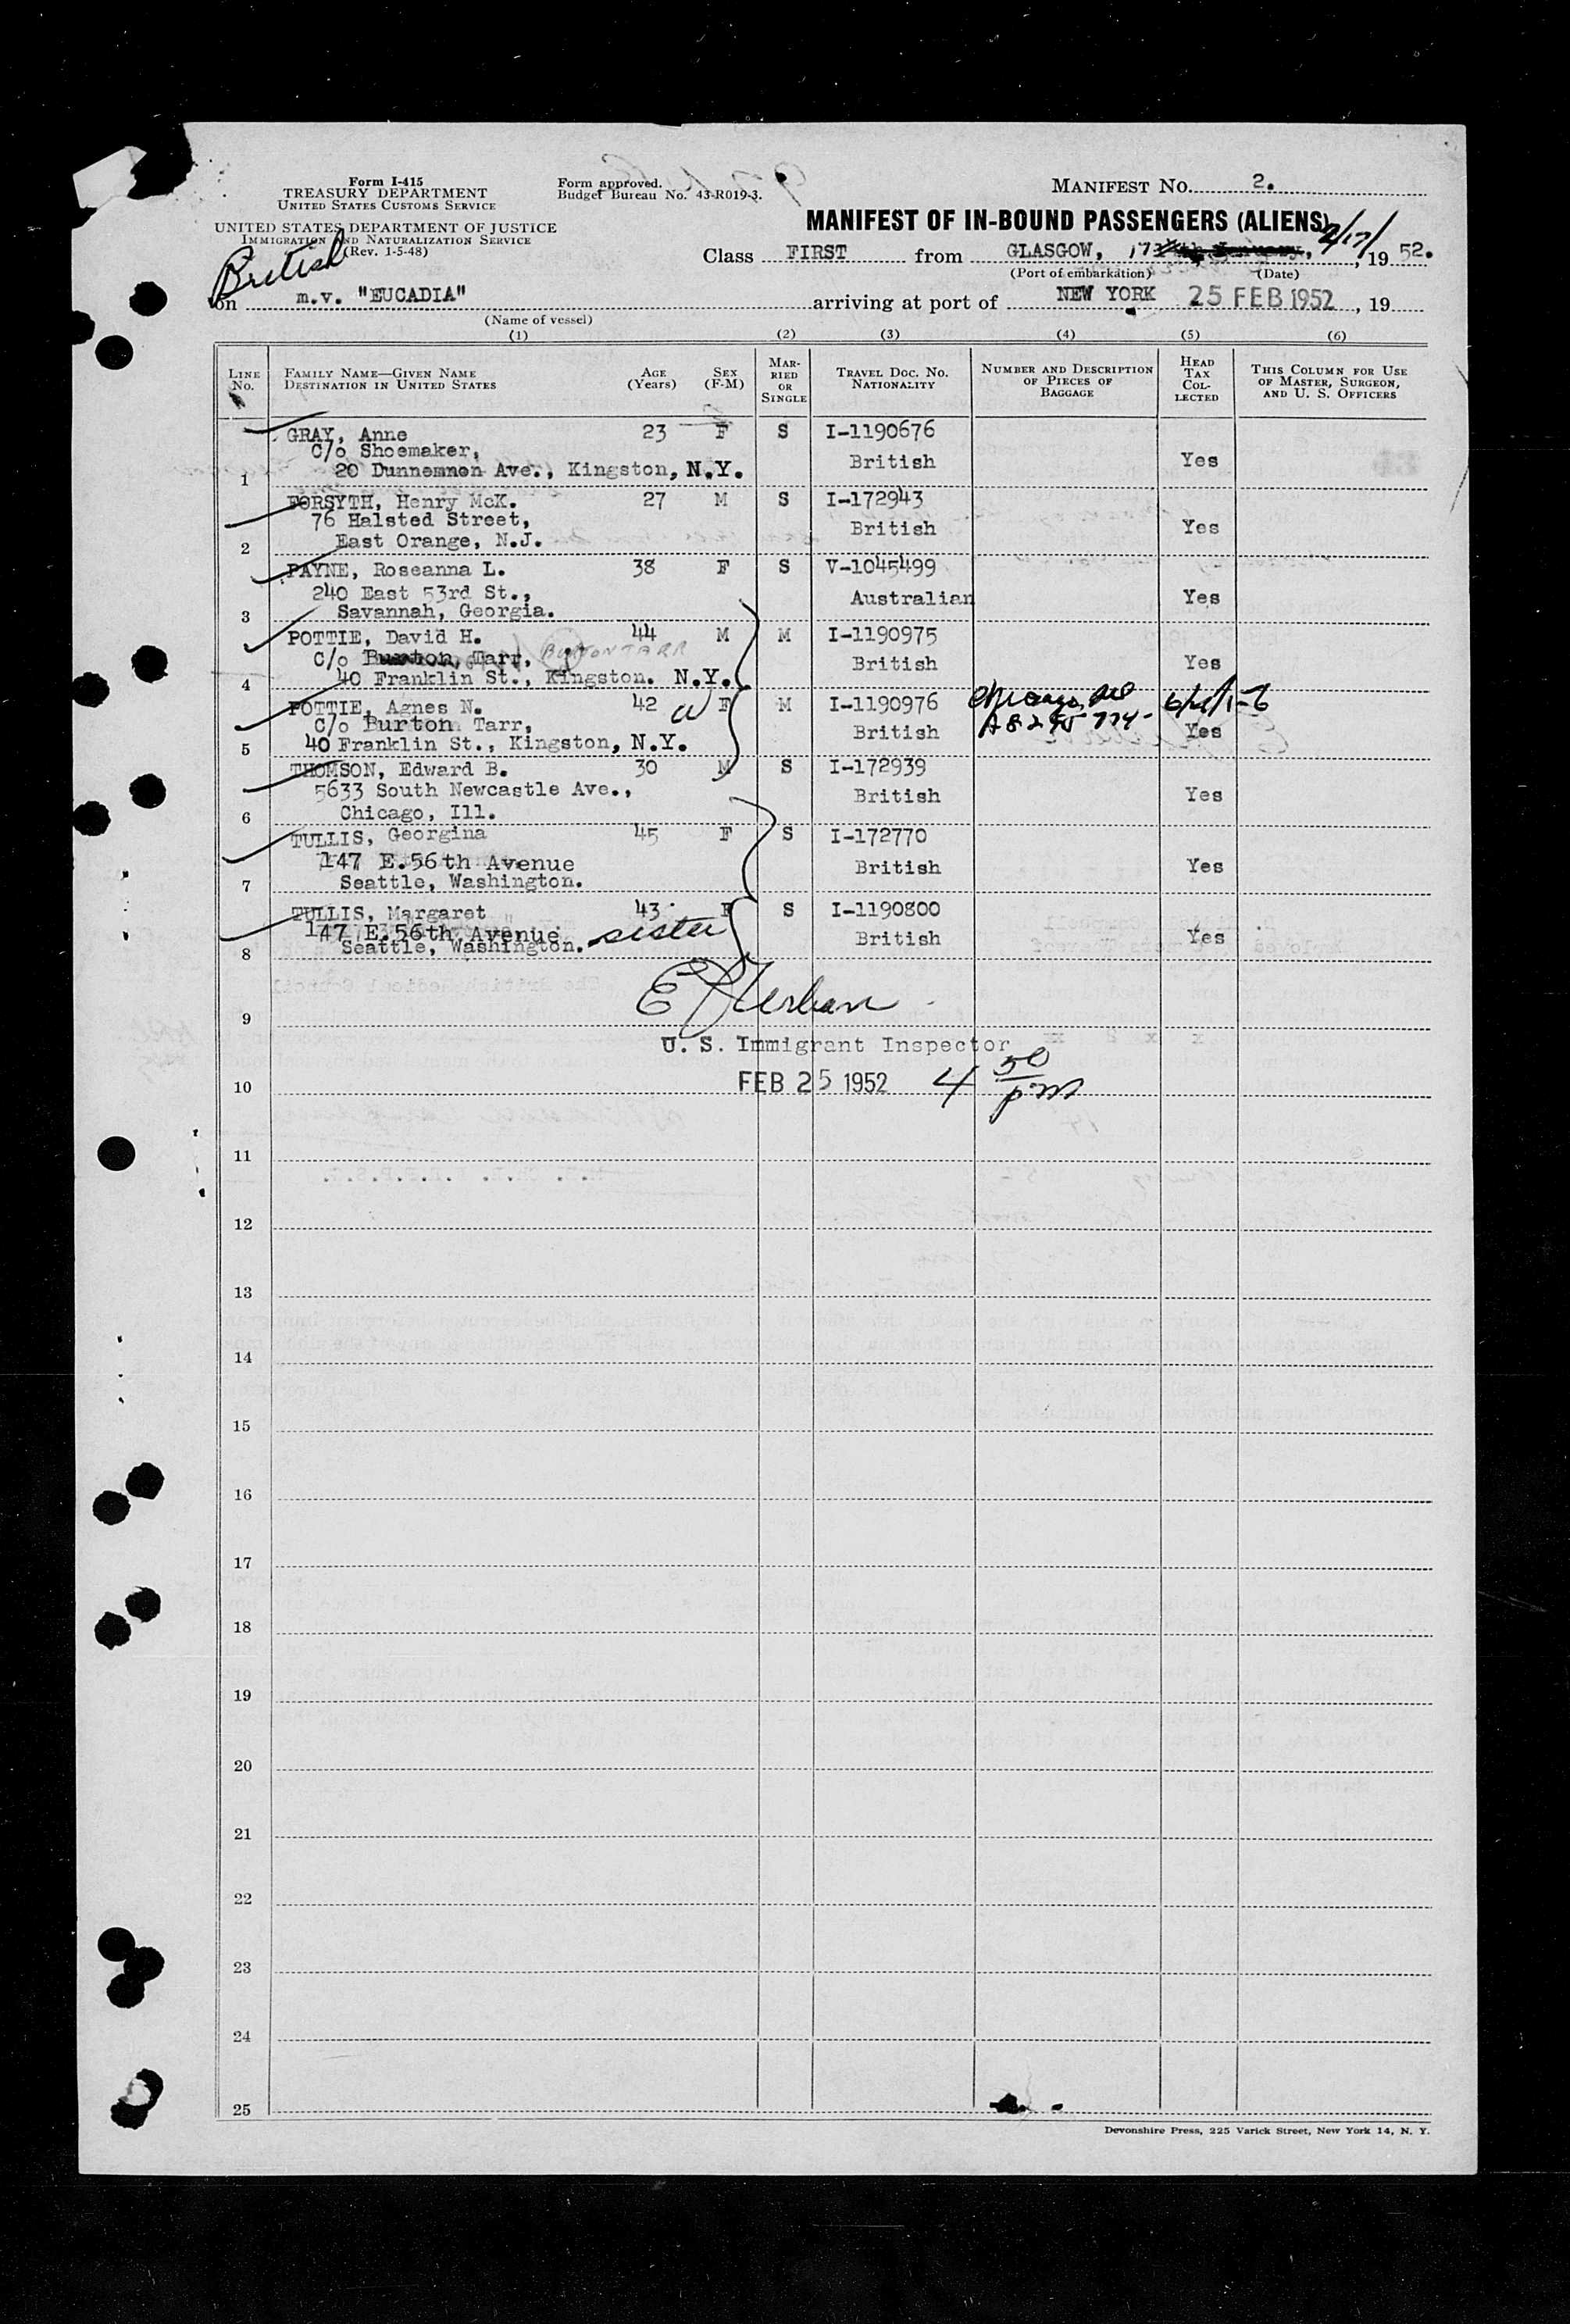 Form I-415
TREASURY DEPARTMENT
UNITED STATES CUSTOMS SERVICE
UNITED STATES DEPARTMENT OF JUSTICE
IMMIGRATION AND NATURALIZATION SERVICE
(Rev. 1-5-48)
Form approved.
Budget Bureau No. 43-R019-3.
MANIFEST NO. 2.
MANIFEST OF IN-BOUND PASSENGERS (ALIENS)
British
Class FIRST from GLASGOW, 17 2/17/, 19 52.
(Port of embarkation) (Date)
on m.v. "EUCADIA" arriving at port of NEW YORK 25 FEB 1952, 19
(Name of vessel)
(1) (2) (3) (4) (5) (6)
LINE NO. FAMILY NAME—GIVEN NAME DESTINATION IN UNITED STATES AGE (Years) SEX (F-M) MARRIED OR SINGLE TRAVEL DOC. NO. NATIONALITY NUMBER AND DESCRIPTION OF PIECES OF BAGGAGE HEAD TAX COLLECTED THIS COLUMN FOR USE OF MASTER, SURGEON, AND U. S. OFFICERS
GRAY, Anne 23 F S I-1190676
C/o Shoemaker,
1 20 Dunnemnen Ave., Kingston, N.Y. British Yes
FORSYTH, Henry McK. 27 M S I-172943
76 Halsted Street, British Yes
2 East Orange, N.J.
PAYNE, Roseanna L. 38 F S V-1045499
240 East 53rd St., Australian Yes
3 Savannah, Georgia.
POTTIE, David H. 44 M M I-1190975
C/o Burton, Tarr, BURTON TARR British Yes
4 40 Franklin St., Kingston. N.Y.
POTTIE, Agnes N. 42 W F M I-1190976 Chicago, Ill
C/o Burton Tarr, British A8 295 774 Yes
5 40 Franklin St., Kingston, N.Y.
THOMSON, Edward B. 30 M S I-172939
5633 South Newcastle Ave., British Yes
6 Chicago, Ill.
TULLIS, Georgina 45 F S I-172770
147 E.56th Avenue British Yes
7 Seattle, Washington.
TULLIS, Margaret 43 F S I-1190800
147 E.56th Avenue sister British Yes
8 Seattle, Washington.
9
U. S. Immigrant Inspector
10 FEB 25 1952 4 50 pm
11
12
13
14
15
16
17
18
19
20
21
22
23
24
25
Devonshire Press, 225 Varick Street, New York 14, N. Y.